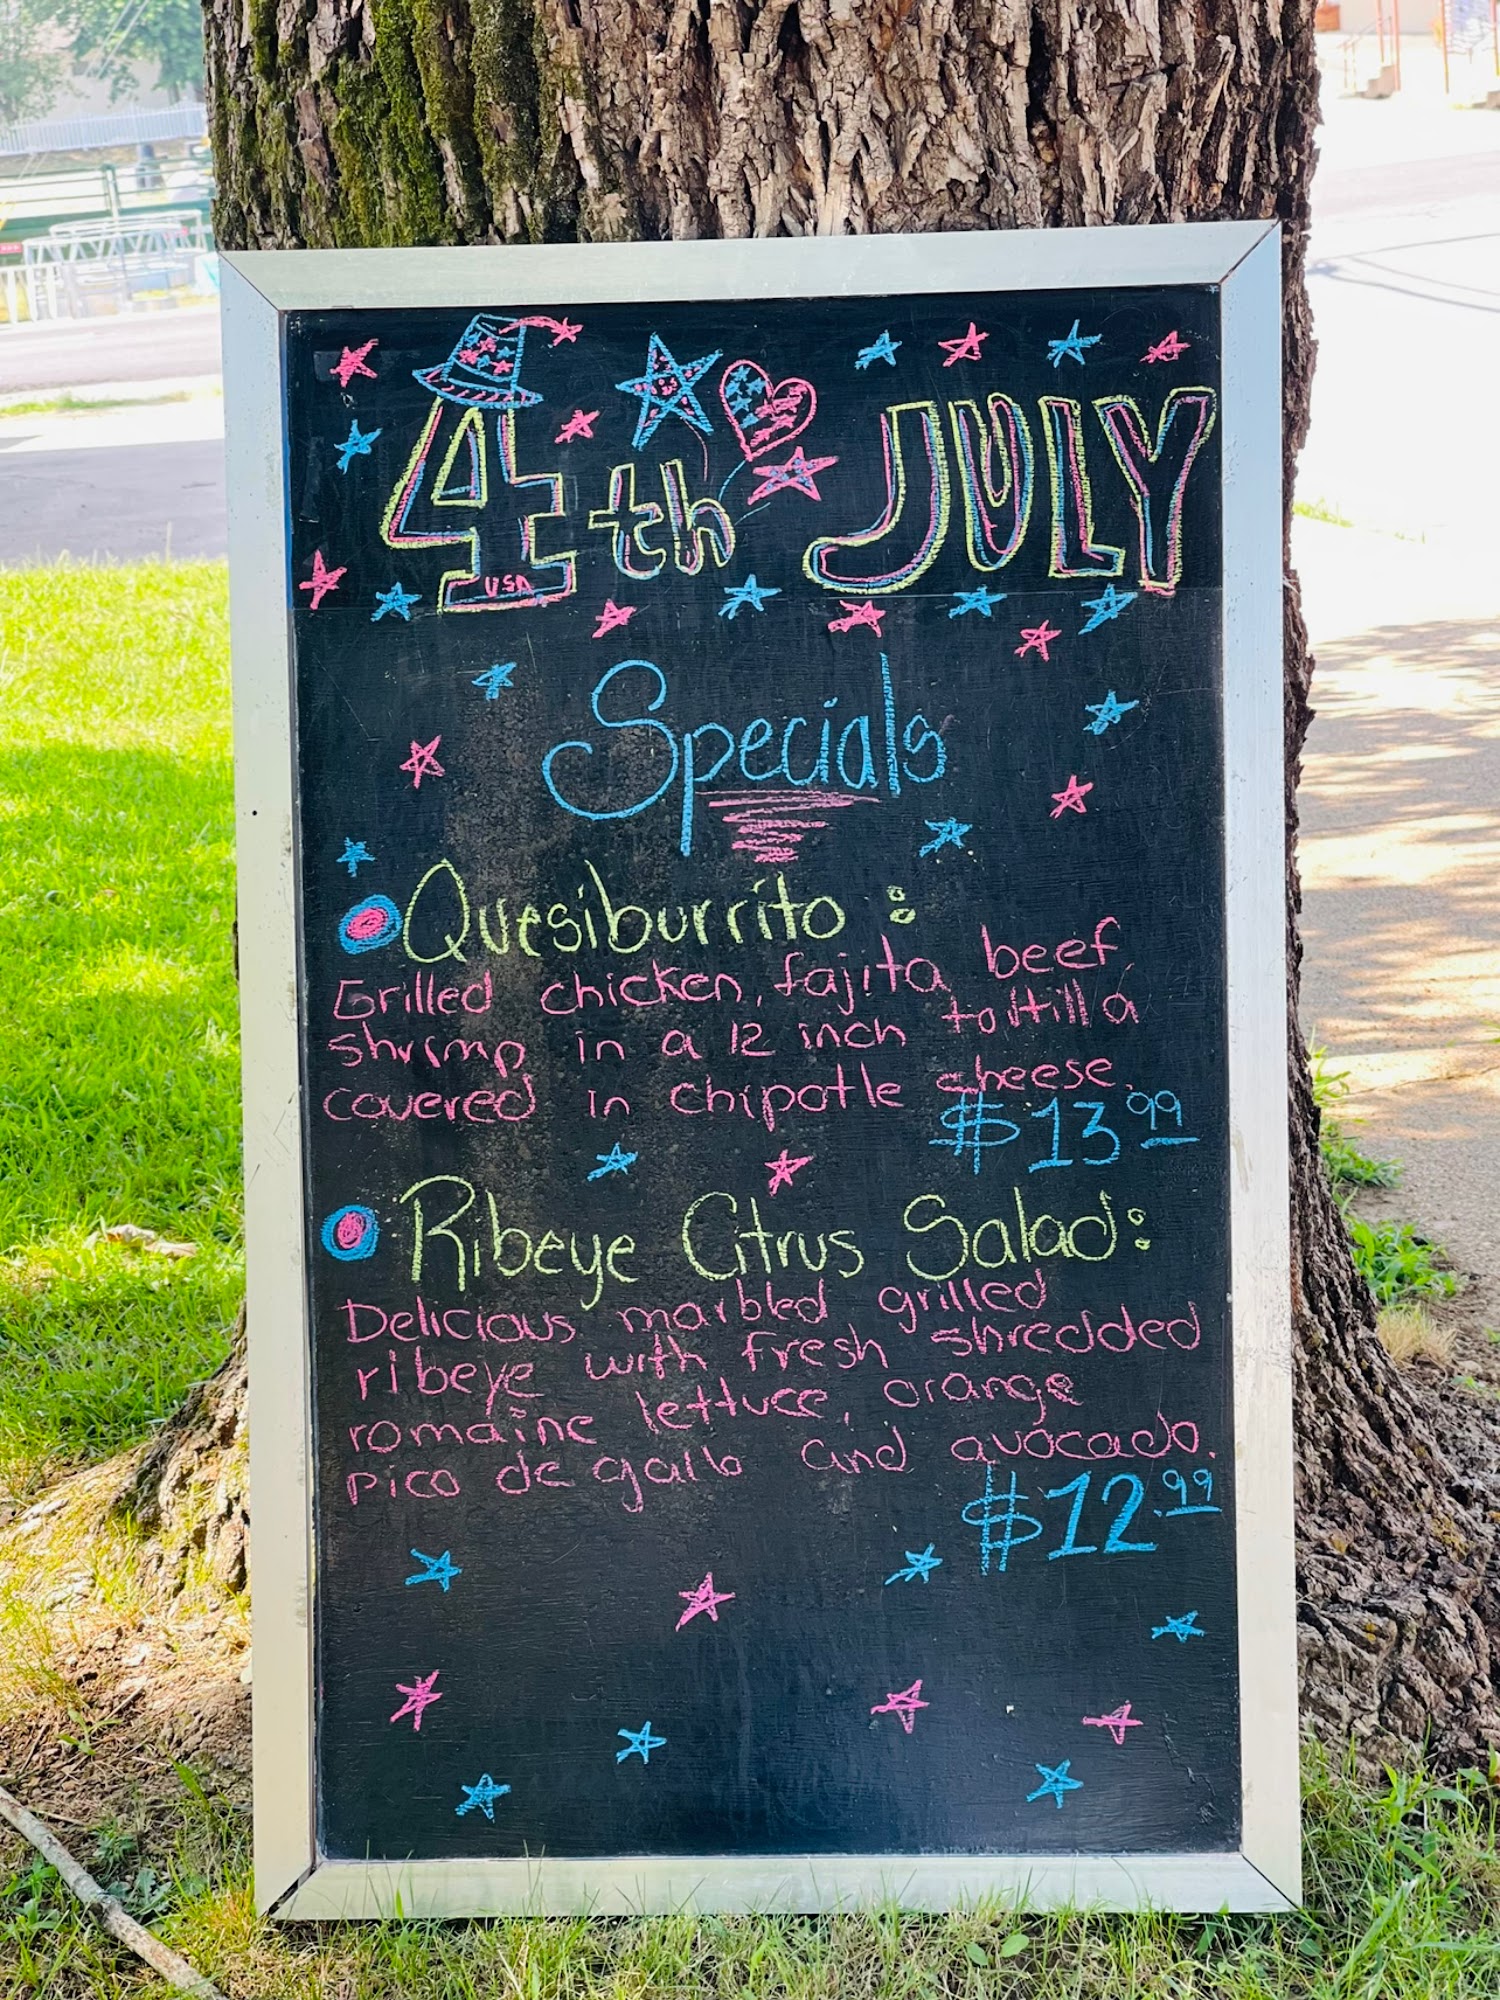 4th JULY
USA
Specials
Quesiburrito:
Grilled chicken, fajita beef,
shrimp in a 12 inch tortilla
covered in chipotle cheese.
$13.99
Ribeye Citrus Salad:
Delicious marbled grilled
ribeye with fresh shredded
romaine lettuce, orange
pico de gallo and avocado.
$12.99